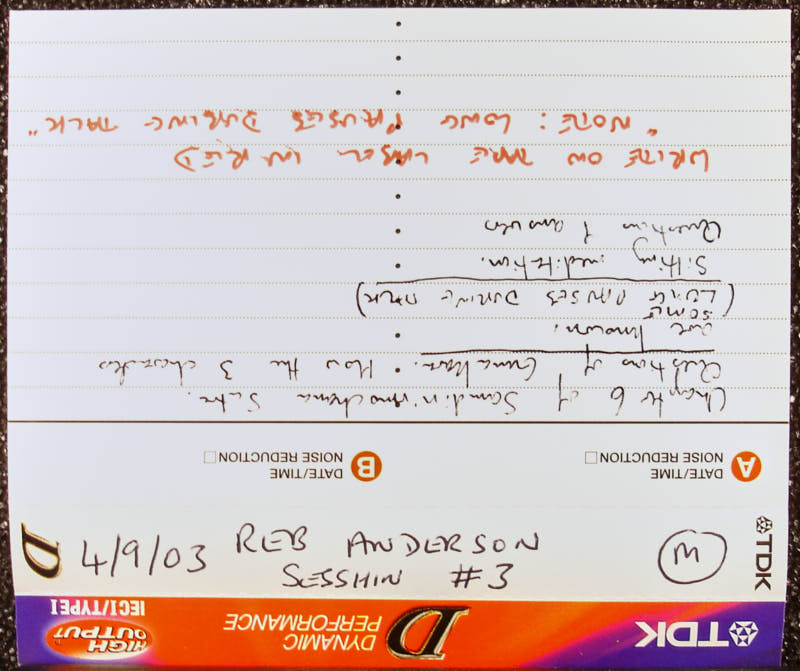 TDK
DYNAMIC
PERFORMANCE
D
HIGH
OUTPUT
IECI/TYPE I
TDK
4/9/03 REB ANDERSON
SESSHIN #3
D
A DATE/TIME
NOISE REDUCTION
B DATE/TIME
NOISE REDUCTION
Chapter 6 of Samdinirmochana Sutra.
Questions of Gunakara. How the 3 characters
are known.
(SOME
LONG PAUSES DURING TALK)
Sitting meditation.
Question & answer
WRITE ON TAPE LABEL IN RED
"NOTE: LONG PAUSES DURING TALK"